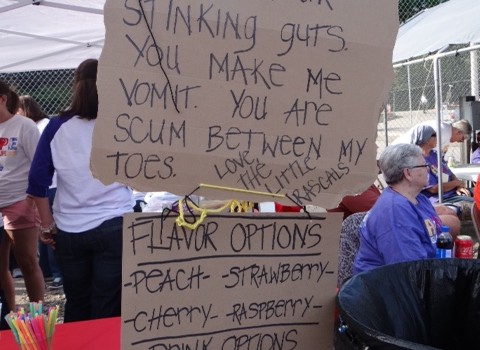 STINKING gUTS.
YOU MAKE ME
VOMIT. YOU ARE
SCUM BETWEEN MY
TOES.
LOVE
THE LITTLE
RASCALS
FLAVOR OPTIONS
-PEACH- STRAWBERRY-
-CHERRY- RASPBERRY-
DRINK OPTIONS